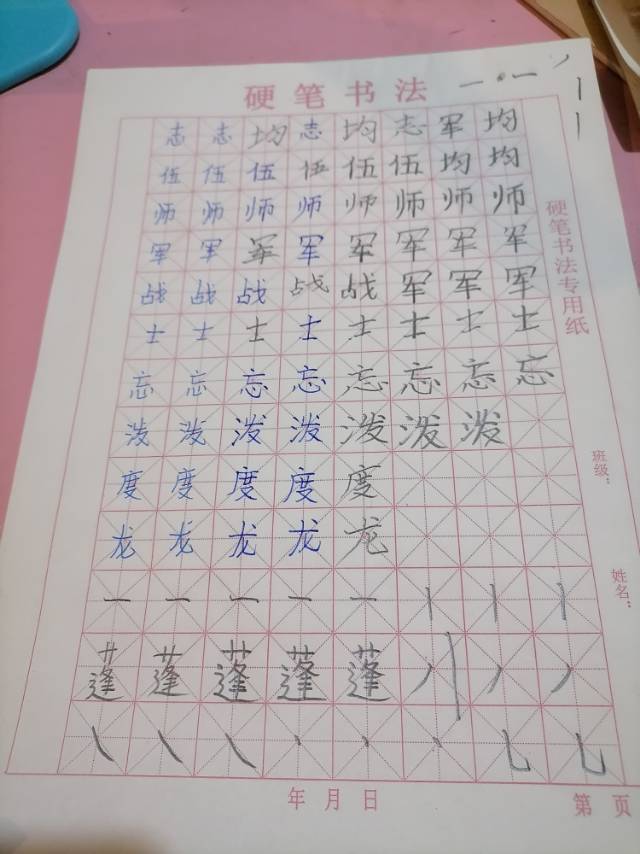 硬笔书法
志志均志均志军均
伍伍伍伍伍伍均均
师师师师师师师师
军军军军军军军军
战战战战战军军军
士士士士士士士士
忘忘忘忘忘忘忘忘
泼泼泼泼泼泼泼
度度度度度
龙龙龙龙龙
一一一一一丨丨丨
蓬蓬蓬蓬蓬丿丨丿丿
㇏㇏㇏丶丶丶乚乚
硬笔书法专用纸
班级：
姓名：
年月日
第页